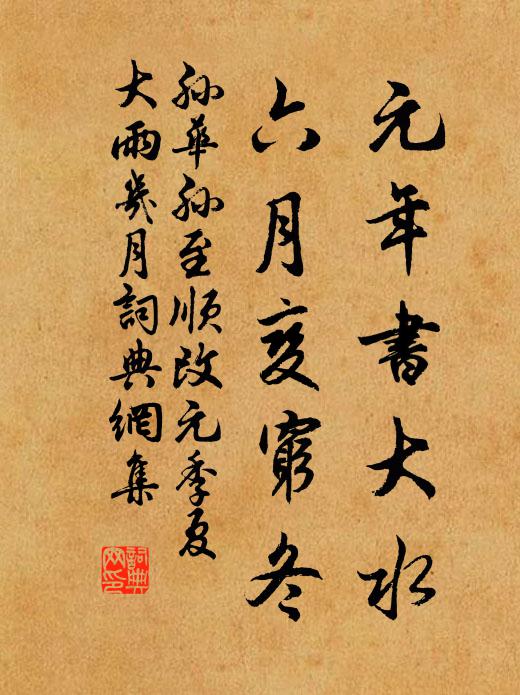 元年書大水
六月变窮冬
孫華孫至順改元季夏
大雨幾月詞典網集
詞典網印